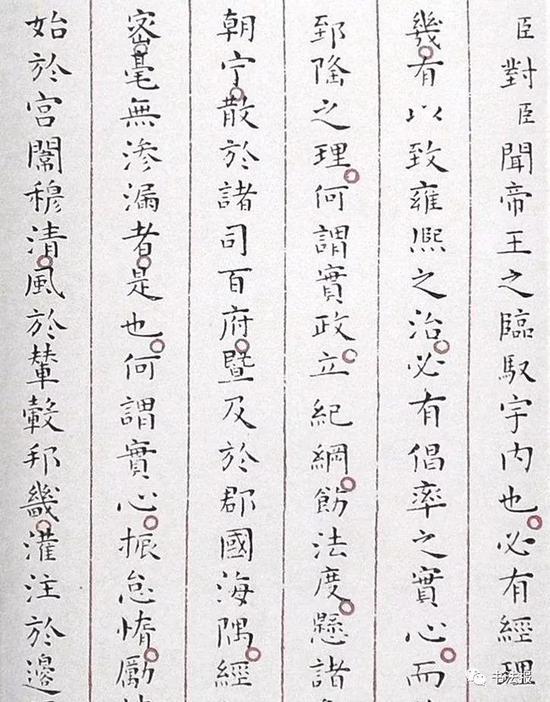 臣對臣聞帝王之臨馭宇内也必有經理
幾有以致雍熙之治必有倡率之實心而
郅隆之理何謂實政立紀綱飭法度懸諸
朝宁散於諸司百府暨及於郡國海隅經
密毫無滲漏者是也何謂實心振怠惰勵
始於宮闈穆清風於輦轂邦畿灌注於邊
书法报